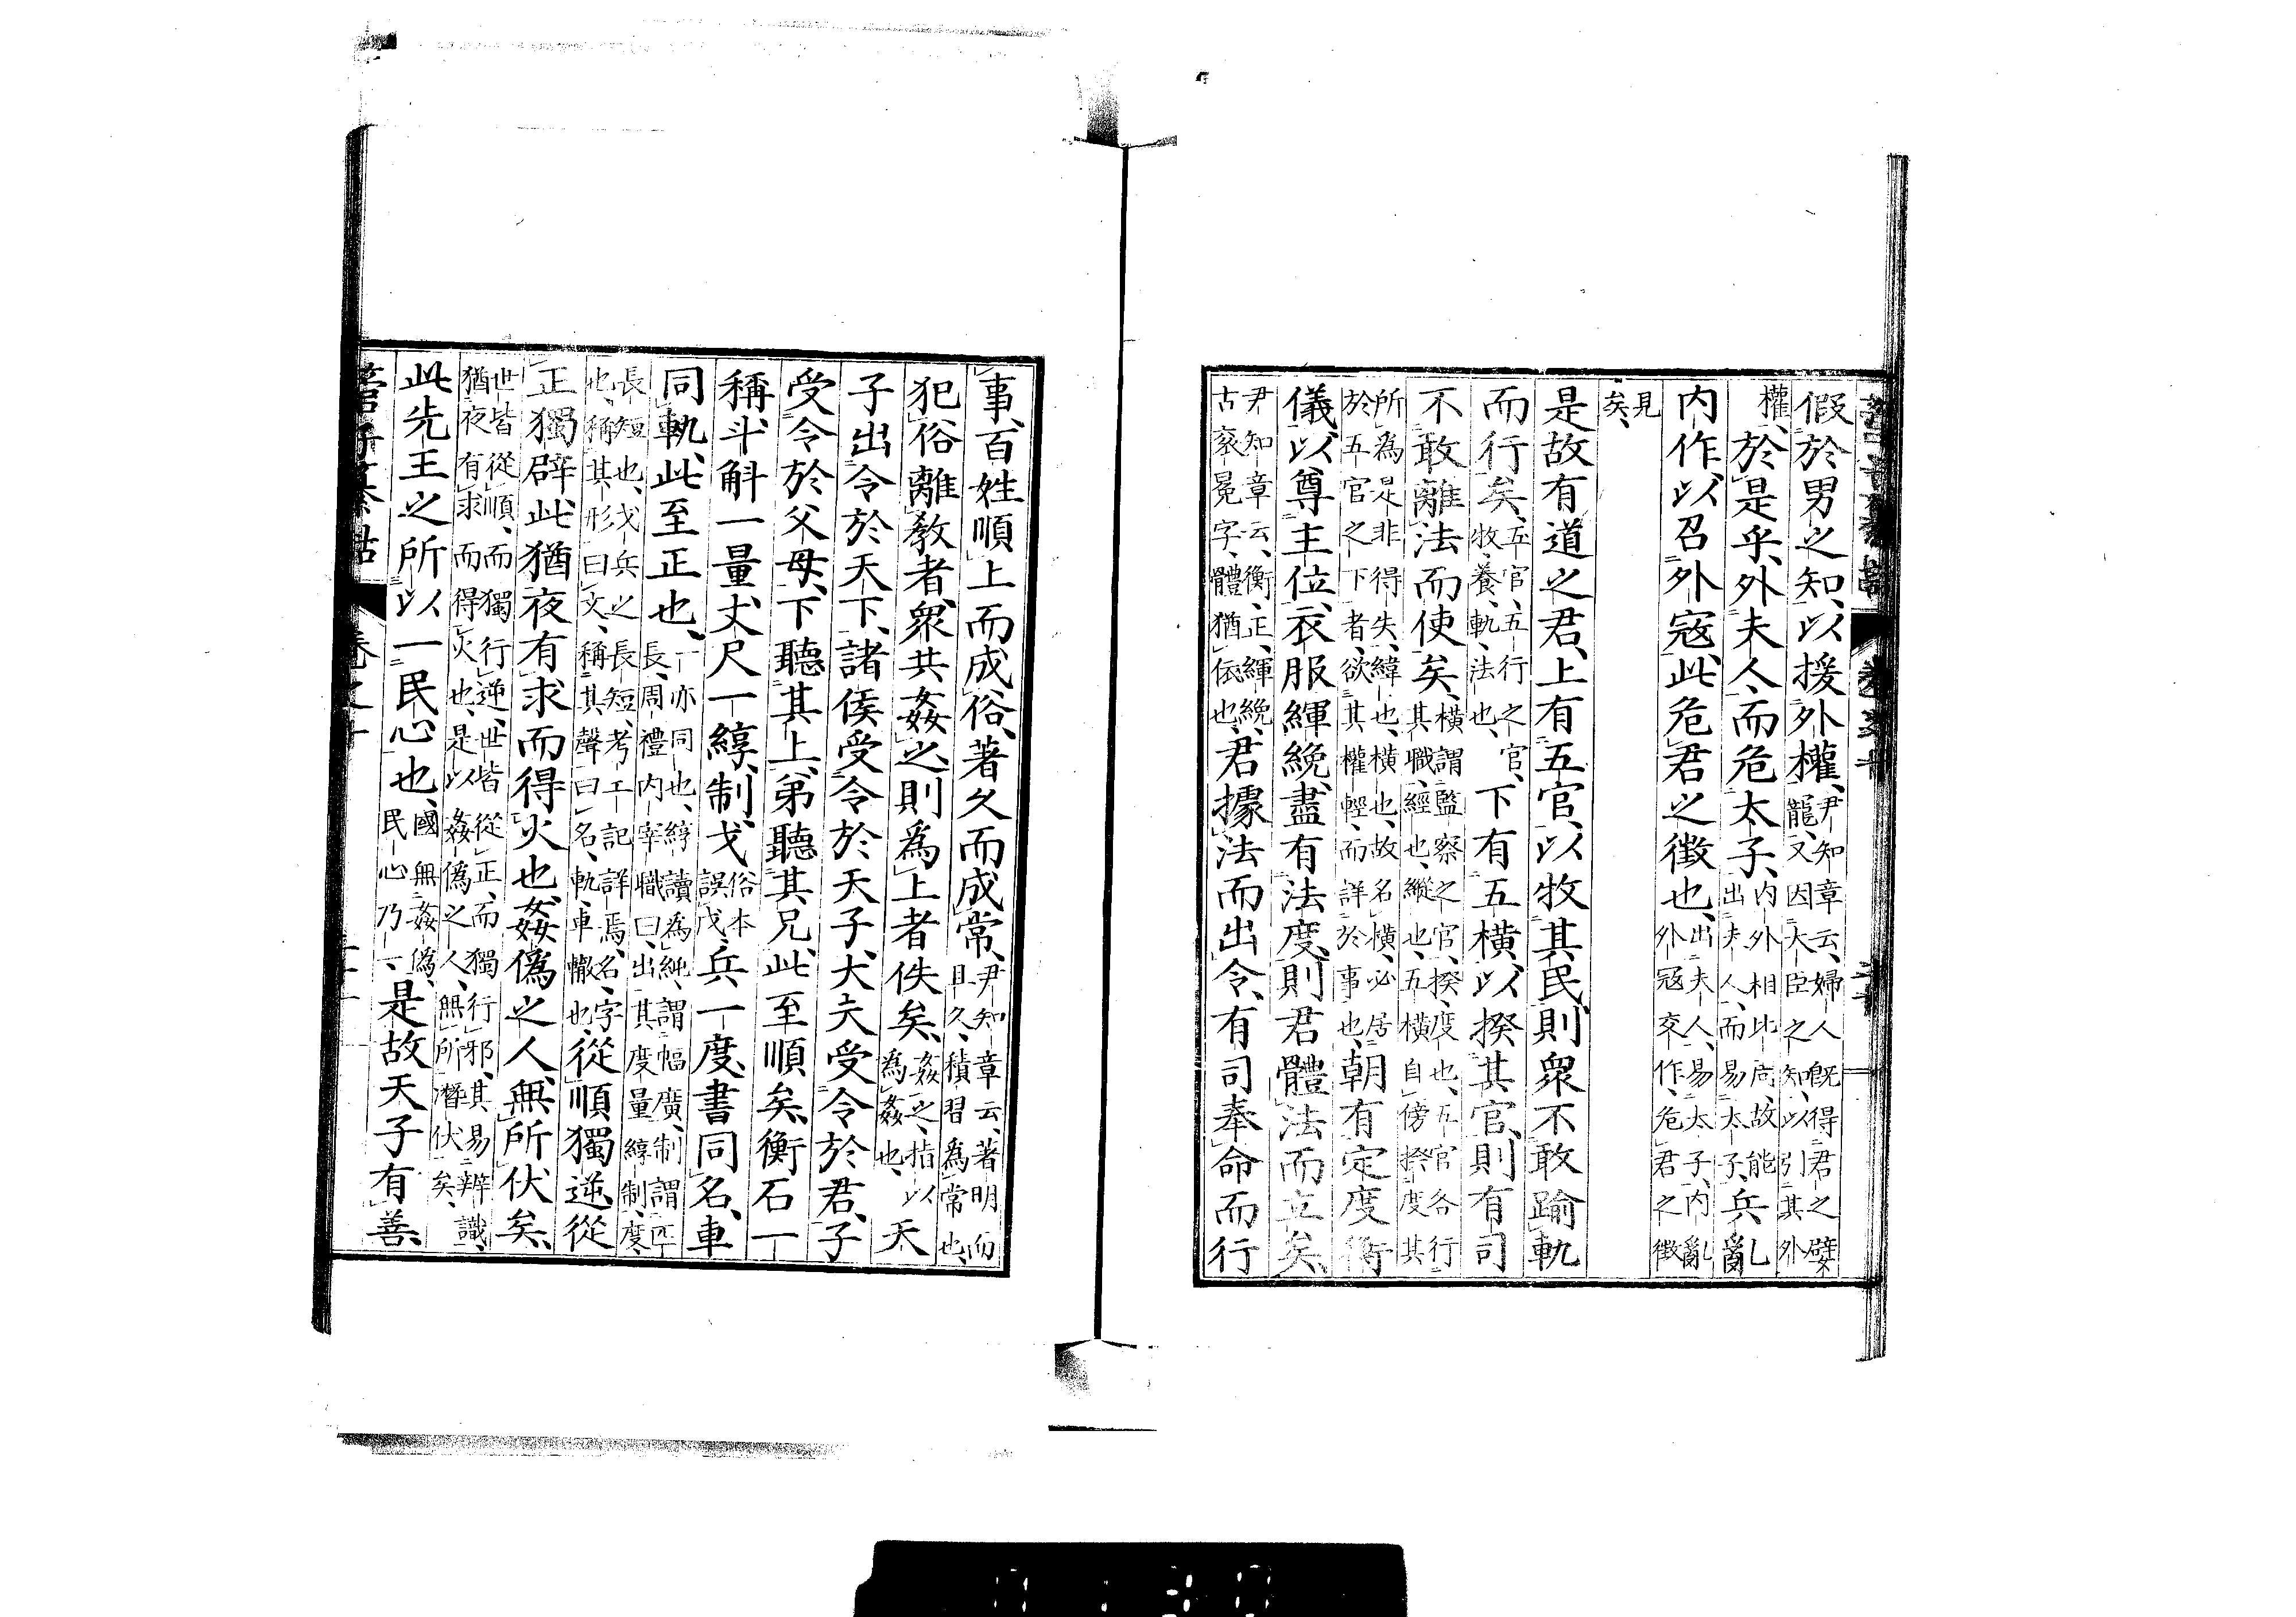 管子纂詁 卷之十 二十
假於男之知、以援外權、尹知章云、婦人既得君之嬖寵、又因大臣之知、以引其外
權、於是乎、外夫人、而危太子、內外相比周、故能出夫人、而易太子、兵亂
內作、以召外寇、此危君之徵也、出夫人、易太子、內亂外寇交作、危君之徵
見矣、
是故有道之君、上有五官、以牧其民、則眾不敢踰軌
而行矣、五官、五行之官、牧、養、軌、法也、下有五橫、以揆其官、則有司
不敢離法而使矣、橫謂監察之官、揆、度也、五官各行其職、經也、縱也、五橫自傍揆度其
所為是非得失、緯也、橫也、故名橫、必居於五官之下者、欲其權輕、而詳於事也、朝有定度衡
儀、以尊主位、衣服緷絻、盡有法度、則君體法而立矣、
尹知章云、衡、正、緷絻、古袞冕字、體猶依也、君據法而出令、有司奉命而行
事、百姓順上而成俗、著久而成常、尹知章云、著明而且久、積習為常也、
犯俗離教者、眾共姦之、則為上者佚矣、姦之、指以為姦也、天
子出令於天下、諸侯受令於天子、大夫受令於君、子
受令於父母、下聽其上、弟聽其兄、此至順矣、衡石一
稱、斗斛一量、丈尺一綧、制、戈俗本誤戊、兵一度、書同名、車
同軌、此至正也、一亦同也、綧讀為純、謂幅廣、制謂匹長、周禮內宰職曰、出其度量綧制、度、
長短也、戈兵之長短、考工記詳焉、名、字也、稱其形曰文、稱其聲曰名、軌、車轍也、從順獨逆、從
正獨辟、此猶夜有求而得火也、姦偽之人、無所伏矣、
世皆從順、而獨行逆、世皆從正、而獨行邪、其易辨識、猶夜有求而得火也、是以姦偽之人、無所潛伏矣、
此先王之所以一民心也、國無姦偽、民心乃一、是故天子有善、
管子纂詁 卷之十